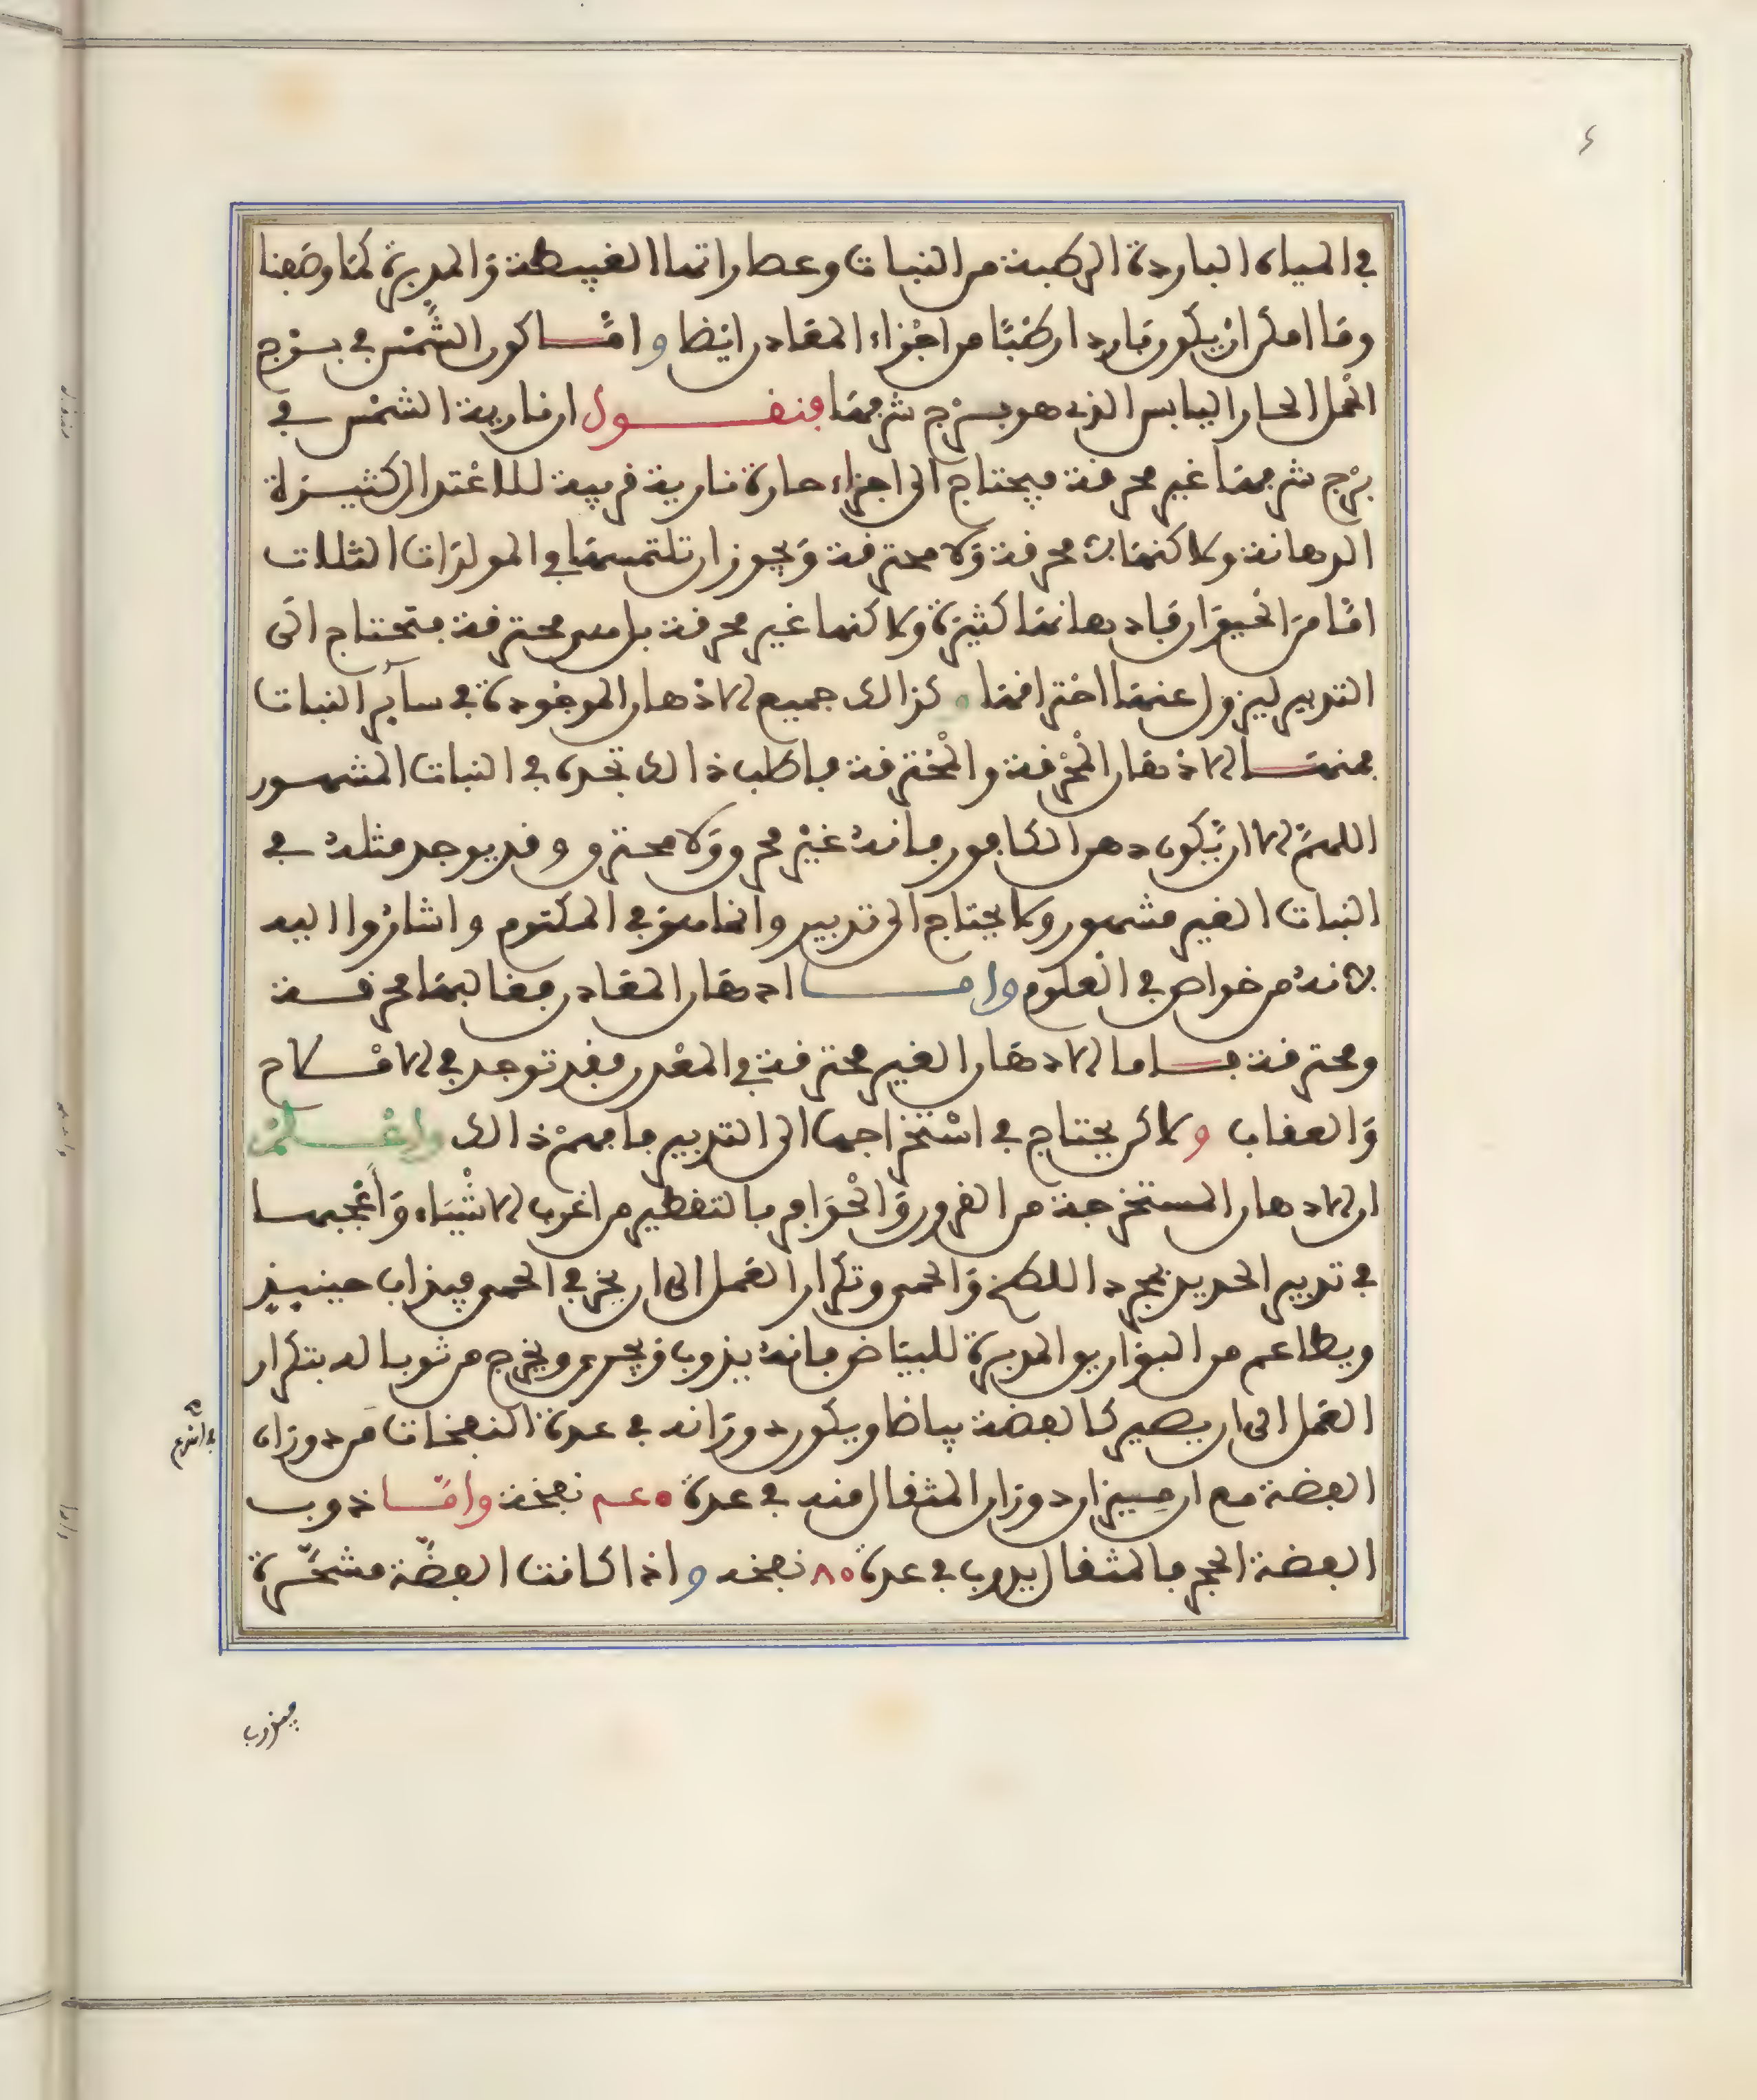 ٤
في المياه الباردة الرطبة من النبات وعصاراتها الغبيطة والمدبرة كما وضعنا
وما امكن ان يكون باردا رطبا من اجزاء المعادن ايضا واما كون الشمس في برج
الحمل الحار اليابس الذي هو برج شرفها فنقول ان نارية الشمس في
برج شرفها غير محرقة فيحتاج الى اجزاء حارة نارية قريبة للاعتدال كثيرة
الدهانة ولاكنها لا محرقة ولا محترقة ويجوز ان تلتمسها في المولدات الثلاث
اما من الحيوان فادهانها كثيرة ولاكنها غير محرقة بل هي محترقة فتحتاج الى
التدبير ليزول عنها احتراقها وكذالك جميع الاذهان الموجودة في ساير النبات
فمنها الاذهان المحرقة والمحترقة فاطلب ذالك تجده في النبات المشهور
اللهم الا ان يكون دهن الكافور فانه غير محرق ولا محترق وقد يوجد مثله في
النبات الغير مشهور ولا يحتاج الى تدبير وانما هو في المكتوم واشاروا اليه
لانه من خواص في العلوم واما ادهان المعادن فغالبها محرقة
ومحترقة فاما الادهان الغير محترقة في المعدن فقد توجد في الاملاح
والعقاب ولاكن يحتاج في استخراجها الى التدبير فافهم ذالك واعلم
ان الادهان المستخرجة من القرون والحوافر بالتقطير من اغرب الاشياء واعجبها
في تدبير الحديد بمجرد اللطخ والحمي وتكرار العمل الى ان يخر في الحمى فيذاب حينيذ
ويطاعم من البواريق المدبرة للبياض فانه يذوب ويجري ويخرج من ثوباله بتكرار
العمل الى ان يصير كالفضة بياضا ويكون دورانه في عدة النفخات من دوران
الفضة مع ان ميزان دوران المثقال منه في عدة نفخة واما ذوب
الفضة الحجر فالمثقال يذوب في عدة ٨٠ نفخة واذا كانت الفضة مشحرة
فيذوب